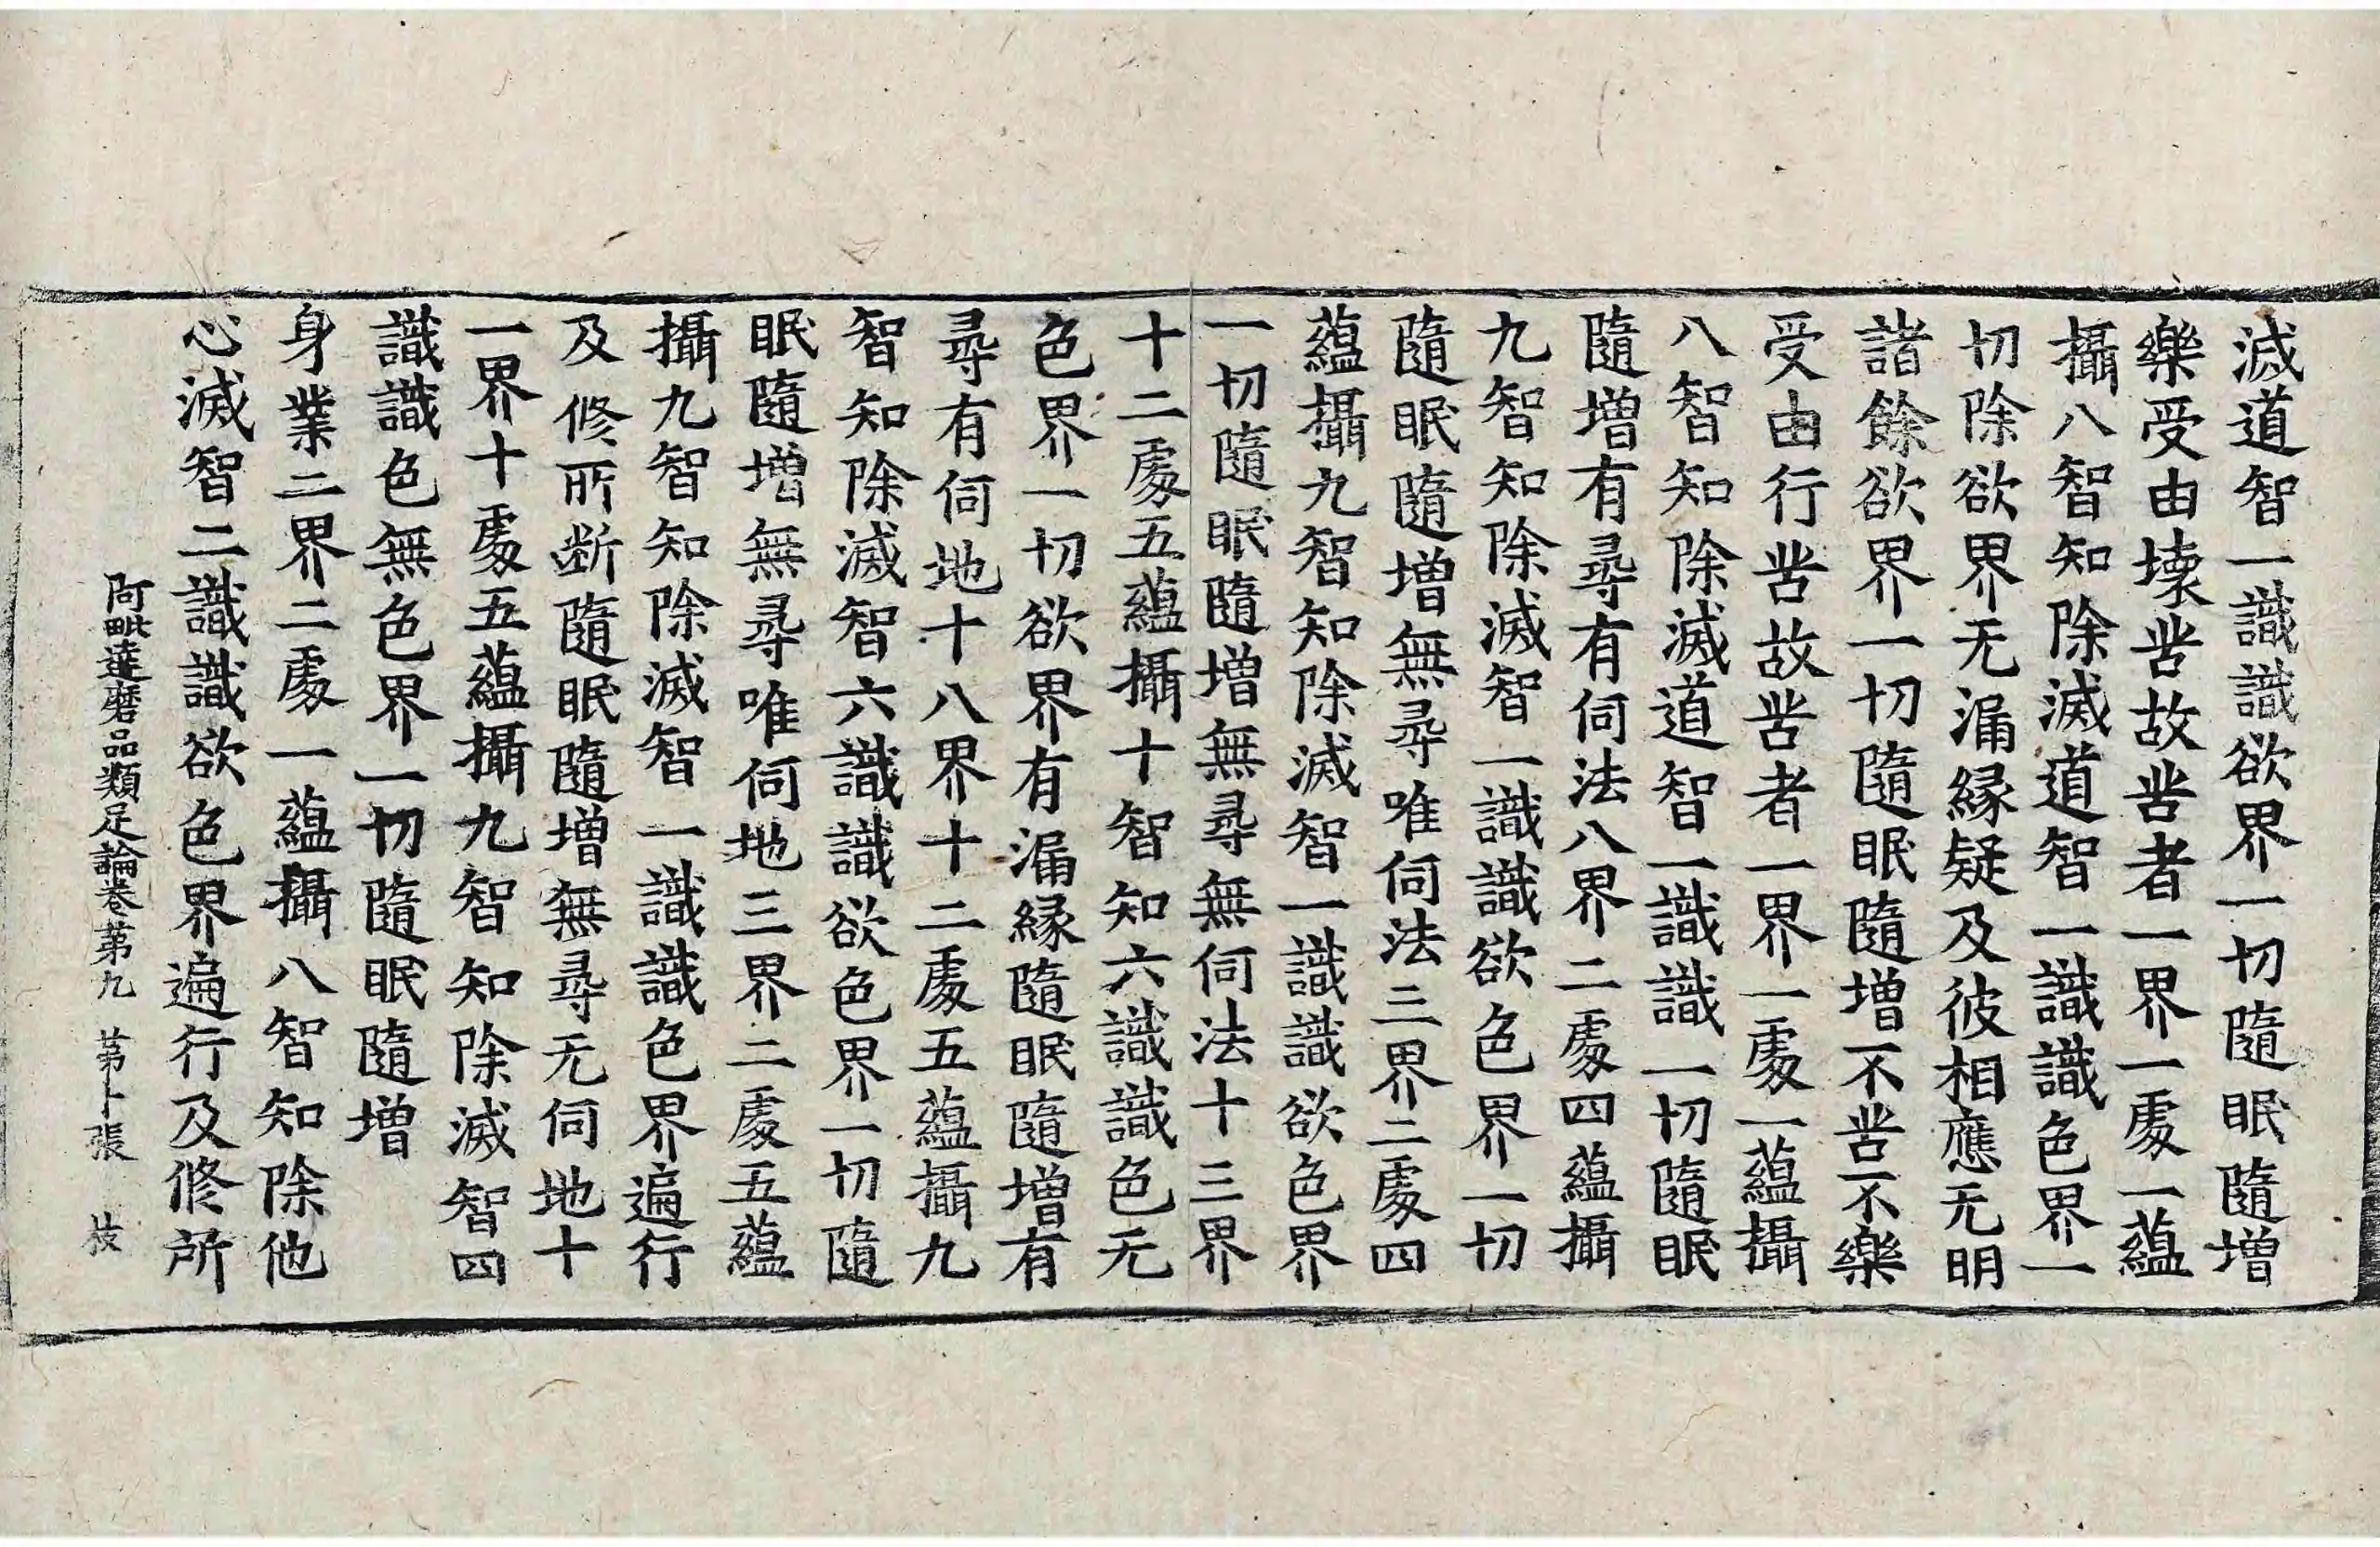 滅道智一識識欲界一切隨眠隨增
樂受由壞苦故苦者一界一處一蘊
攝八智知除滅道智一識識色界一
切除欲界无漏緣疑及彼相應无明
諸餘欲界一切隨眠隨增不苦不樂
受由行苦故苦者一界一處一蘊攝
八智知除滅道智一識識一切隨眠
隨增有尋有伺法八界二處四蘊攝
九智知除滅智一識識欲色界一切
隨眠隨增無尋唯伺法三界二處四
蘊攝九智知除滅智一識識欲色界
一切隨眠隨增無尋無伺法十三界
十二處五蘊攝十智知六識識色无
色界一切欲界有漏緣隨眠隨增有
尋有伺地十八界十二處五蘊攝九
智知除滅智六識識欲色界一切隨
眠隨增無尋唯伺地三界二處五蘊
攝九智知除滅智一識識色界遍行
及修所斷隨眠隨增無尋无伺地十
一界十處五蘊攝九智知除滅智四
識識色無色界一切隨眠隨增
身業二界二處一蘊攝八智知除他
心滅智二識識欲色界遍行及修所
阿毗達磨品類足論卷第九 第卜張 枝